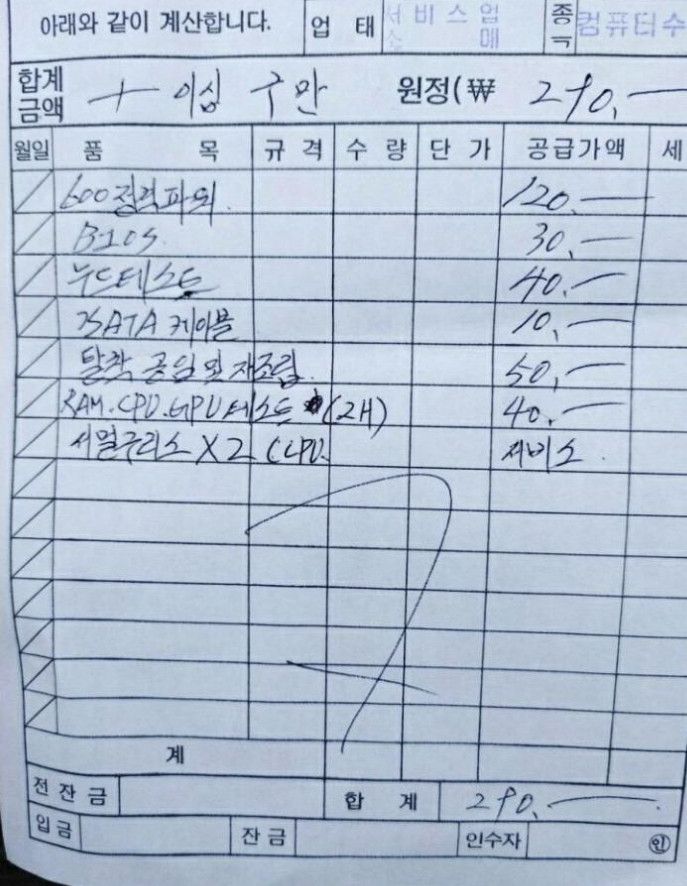 아래와 같이 계산합니다. 업 태 서비스업 소 매 종 컴퓨터수
합계 금액 一 이십 구만 원정(₩ 290,—
월일 품 목 규 격 수 량 단 가 공급가액 세
600정격파워 120,—
BIOS 30,—
누드테스트 40,—
SATA 케이블 10,—
탈착 공임 및 재조립 50,—
RAM.CPU.GPU 테스트 (2H) 40,—
써멀구리스 X2 (CPU. 서비스.
계
전잔금 합 계 290,—
입금 잔금 인수자 인